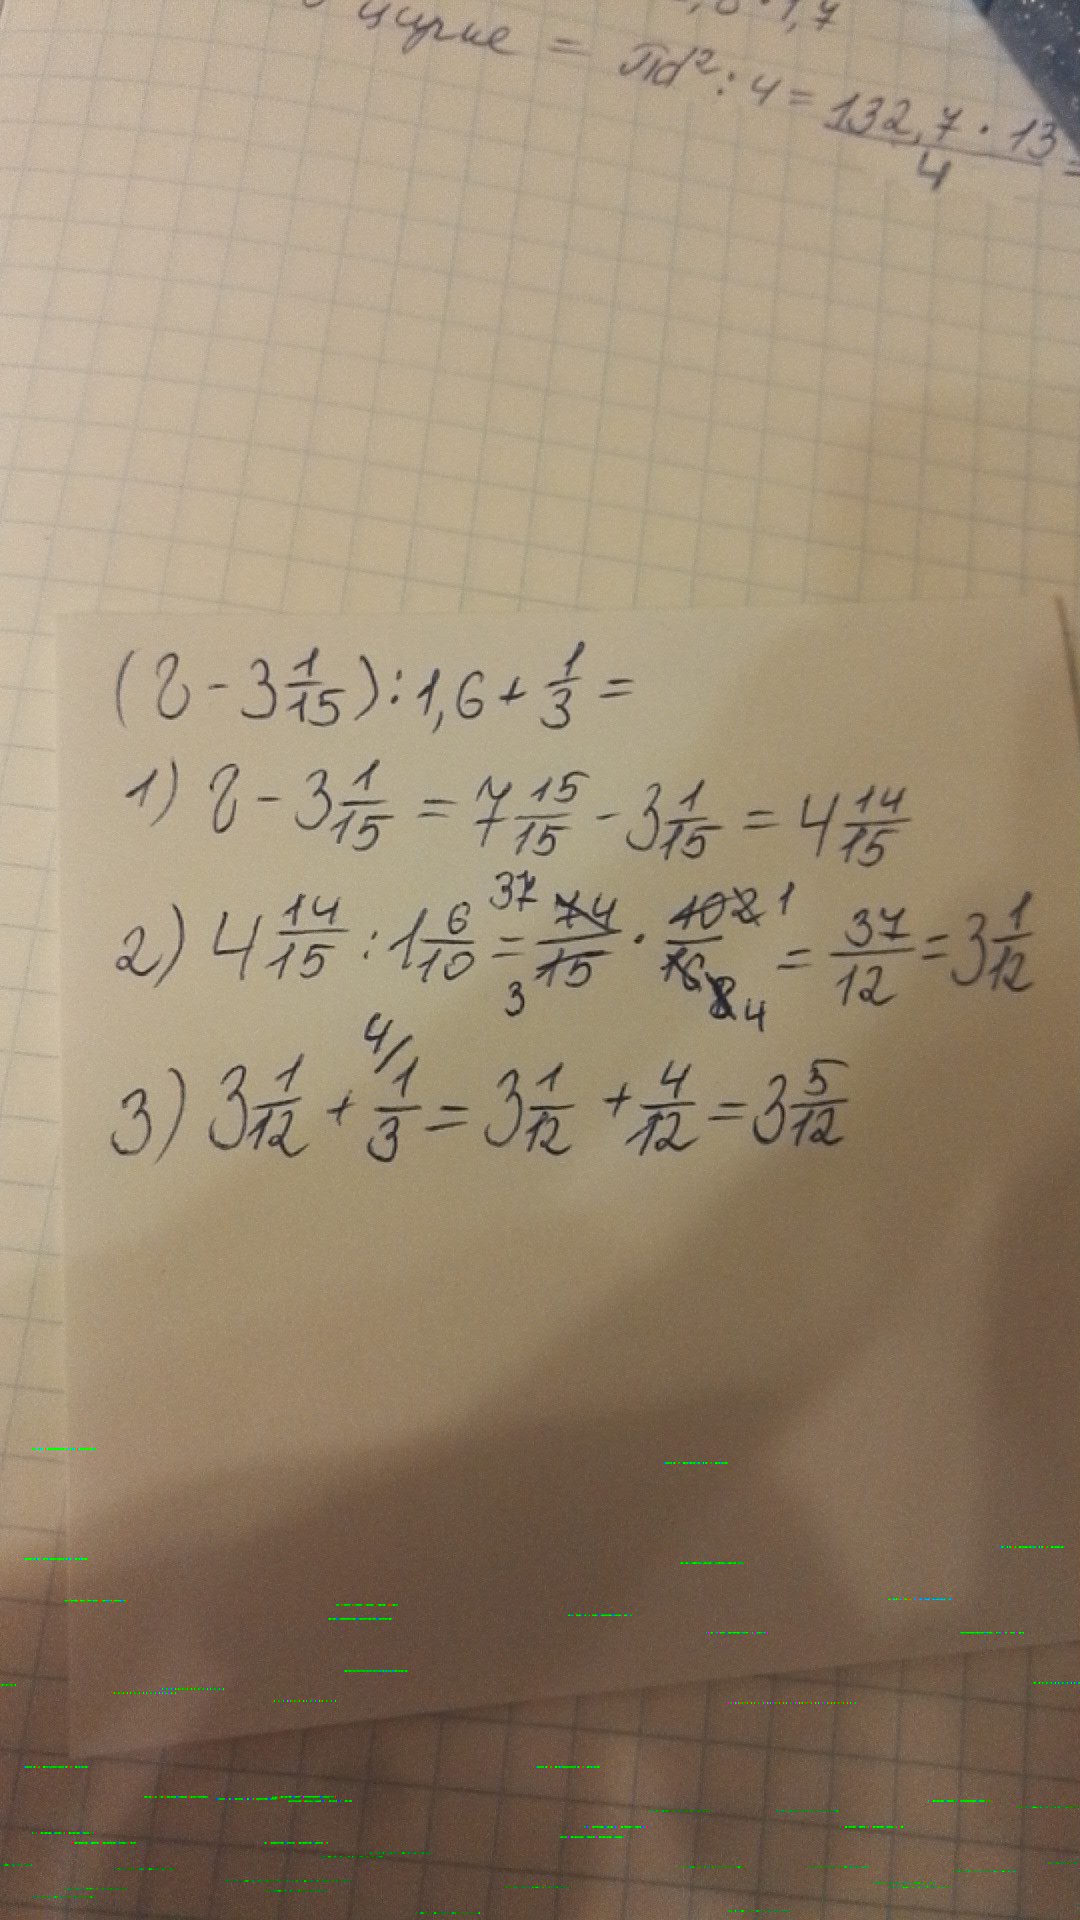 цирке = πd²:4 = 132,7·13/4 =
(8 - 3 1/15) : 1,6 + 1/3 =
1) 8 - 3 1/15 = 7 15/15 - 3 1/15 = 4 14/15
2) 4 14/15 : 1 6/10 = 37 74/15 3 · 10 2 1/16 8 4 = 37/12 = 3 1/12
3) 3 1/12 + 4/ 1/3 = 3 1/12 + 4/12 = 3 5/12